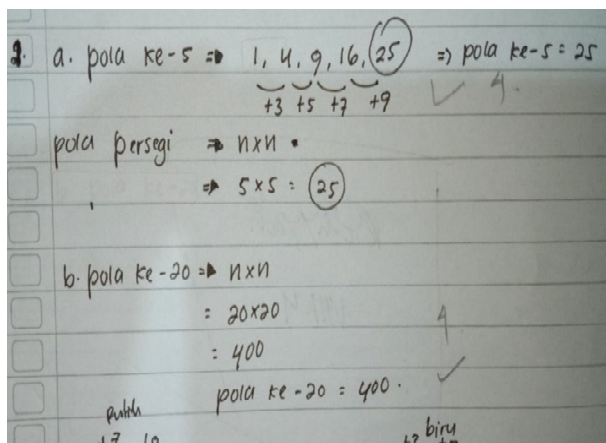 2. a. pola ke-5 ⇒ 1, 4, 9, 16, 25 ⇒ pola ke-5 = 25
+3 +5 +7 +9 ✓ 4.
pola persegi ⇒ n×n
⇒ 5×5 = 25
b. pola ke-20 ⇒ n×n
= 20×20
= 400 4
pola ke-20 = 400. ✓
putih biru